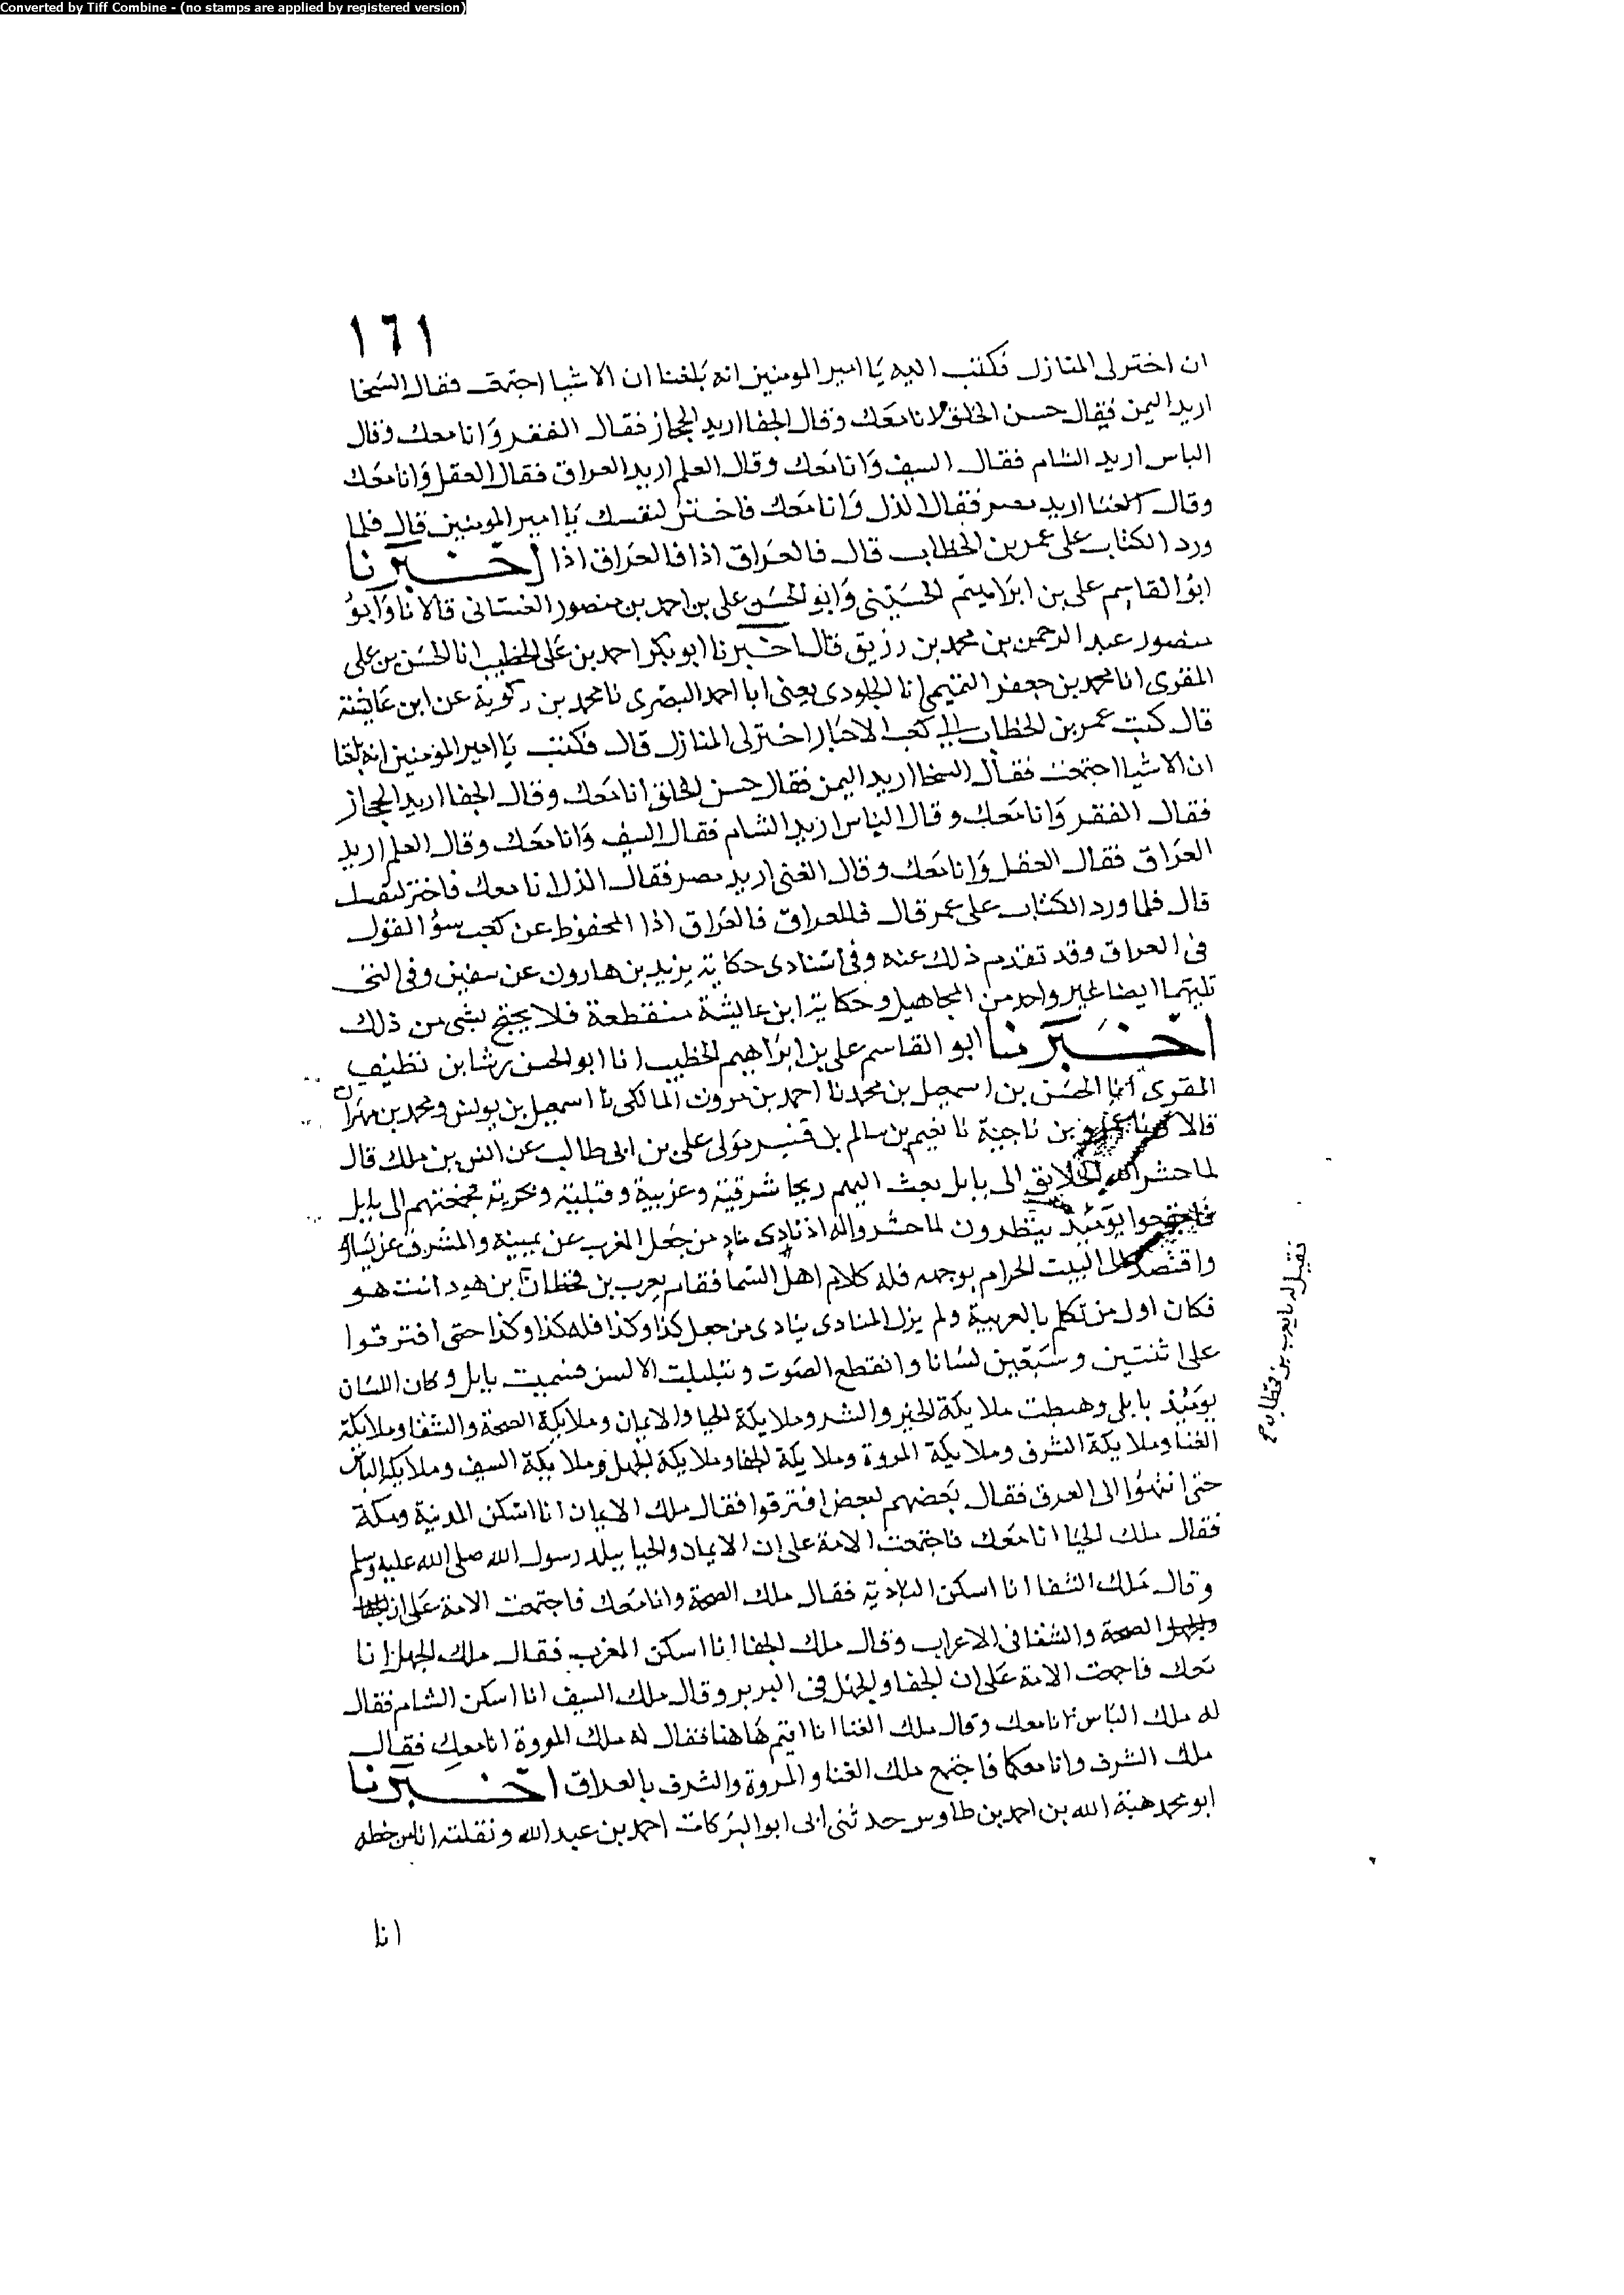 Converted by Tiff Combine - (no stamps are applied by registered version)
١٦١
ان اختر لى المنازل فكتب اليه يا امير المومنين انه بلغنا ان الاشيا اجتمعت فقال السخا
اريد اليمن فقال حسن الخلق انا معك وقال الجفا اريد الحجاز فقال الفقر وانا معك وقال
الباس اريد الشام فقال السيف وانا معك وقال العلم اريد العراق فقال العقل وانا معك
وقال الغنا اريد مصر فقال الذل وانا معك فاختر لنفسك يا امير المومنين قال فلما
ورد الكتاب على عمر بن الخطاب قال فالعراق اذا فالعراق اذا اخبرنا
ابو القاسم على بن ابراهيم الحسينى وابو الحسن على بن احمد بن منصور الغسانى قالا نا وابو
منصور عبد الرحمن بن محمد بن رزيق قال اخبرنا ابو بكر احمد بن على الخطيب انا الحسن بن على
المقرى انا محمد بن جعفر التميمى انا الجلودى يعنى ابا احمد البصرى نا محمد بن زكوية عن ابن عايشة
قال كتب عمر بن الخطاب الى كعب الاحبار اختر لى المنازل قال فكتب يا امير المؤمنين انه بلغنا
ان الاشيا اجتمعت فقال السخا اريد اليمن فقال حسن الخلق انا معك وقال الجفا اريد الحجاز
فقال الفقر وانا معك وقال الباس اريد الشام فقال السيف وانا معك وقال العلم اريد
العراق فقال العقل وانا معك وقال الغنى اريد مصر فقال الذل انا معك فاختر لنفسك
قال فلما ورد الكتاب على عمر قال فالعراق فالعراق اذا المحفوظ عن كعب سؤ القول
فى العراق وقد تقدم ذلك عنه وفى اسنادى حكاية يزيد بن هارون عن سفين وفى التى
تليهما ايضا غير واحد من المجاهيل وحكاية ابن عايشة منقطعة فلا يحتج بشى من ذلك
اخبرنا ابو القاسم على بن ابراهيم الخطيب انا ابو الحسن رشا بن نظيف
المقرى انا الحسن بن اسمعيل بن محمد نا احمد بن مروان المالكى نا اسمعيل بن يونس ومحمد بن مهران
قالا نا عمرو بن ناجية نا نعيم بن سالم بن قنبر مولى على بن ابى طالب عن انس بن ملك قال
لما حشر الله الخلائق الى بابل بعث اليهم ريحا شرقية وغربية وقبلية وبحرية فجمعتهم الى بابل
فاجتمعوا يومئذ ينظرون لما حشروا له اذ نادى مناد من جعل المغرب عن يمينه والمشرق عن يساره
واقتصد الى البيت الحرام بوجهه فله كلام اهل السما فقام يعرب بن قحطان بن هود انت هو
فكان اول من تكلم بالعربية ولم يزل المنادى ينادى من جعل كذا وكذا فله كذا وكذا حتى افترقوا
على اثنتين وسبعين لسانا وانقطع الصوت وتبلبلت الالسن فسميت بابل وكان اللسان
يومئذ بابلى وهبطت ملايكة الخير والشر وملايكة الحيا والايمان وملايكة الصحة والشفا وملايكة
الغنا وملايكة الشرف وملايكة المروة وملايكة الجفا وملايكة الجهل وملايكة السيف وملايكة الباس
حتى انتهوا الى العراق فقال بعضهم لبعض افترقوا فقال ملك الايمان انا اسكن المدينة ومكة
فقال ملك الحيا انا معك فاجتمعت الامة على ان الايمان والحيا ببلد رسول الله صلى الله عليه وسلم
وقال ملك الشفا انا اسكن البادية فقال ملك الصحة وانا معك فاجتمعت الامة على ان
الصحة والشفا فى الاعراب وقال ملك الجفا انا اسكن المغرب فقال ملك الجهل انا
معك فاجمعت الامة على ان الجفا والجهل فى البربر وقال ملك السيف انا اسكن الشام فقال
له ملك الباس انا معك وقال ملك الغنا انا اقيم هاهنا فقال له ملك المروة انا معك فقال
ملك الشرف وانا معكما فاجتمع ملك الغنا والمروة والشرف بالعراق اخبرنا
ابو محمد هبة الله بن احمد بن طاوس حدثنى ابى ابو البركات احمد بن عبد الله ونقلته انا من خطه
انا
فقيل له يا يعرب بن قحطان صح